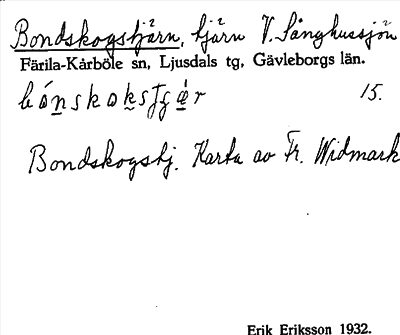 Bondskogstjärn, tjärn V. Långhussjön
Färila-Kårböle sn, Ljusdals tg, Gävleborgs län.
15.
Bondskogstj. Karta av Fr. Widmark
Erik Eriksson 1932.